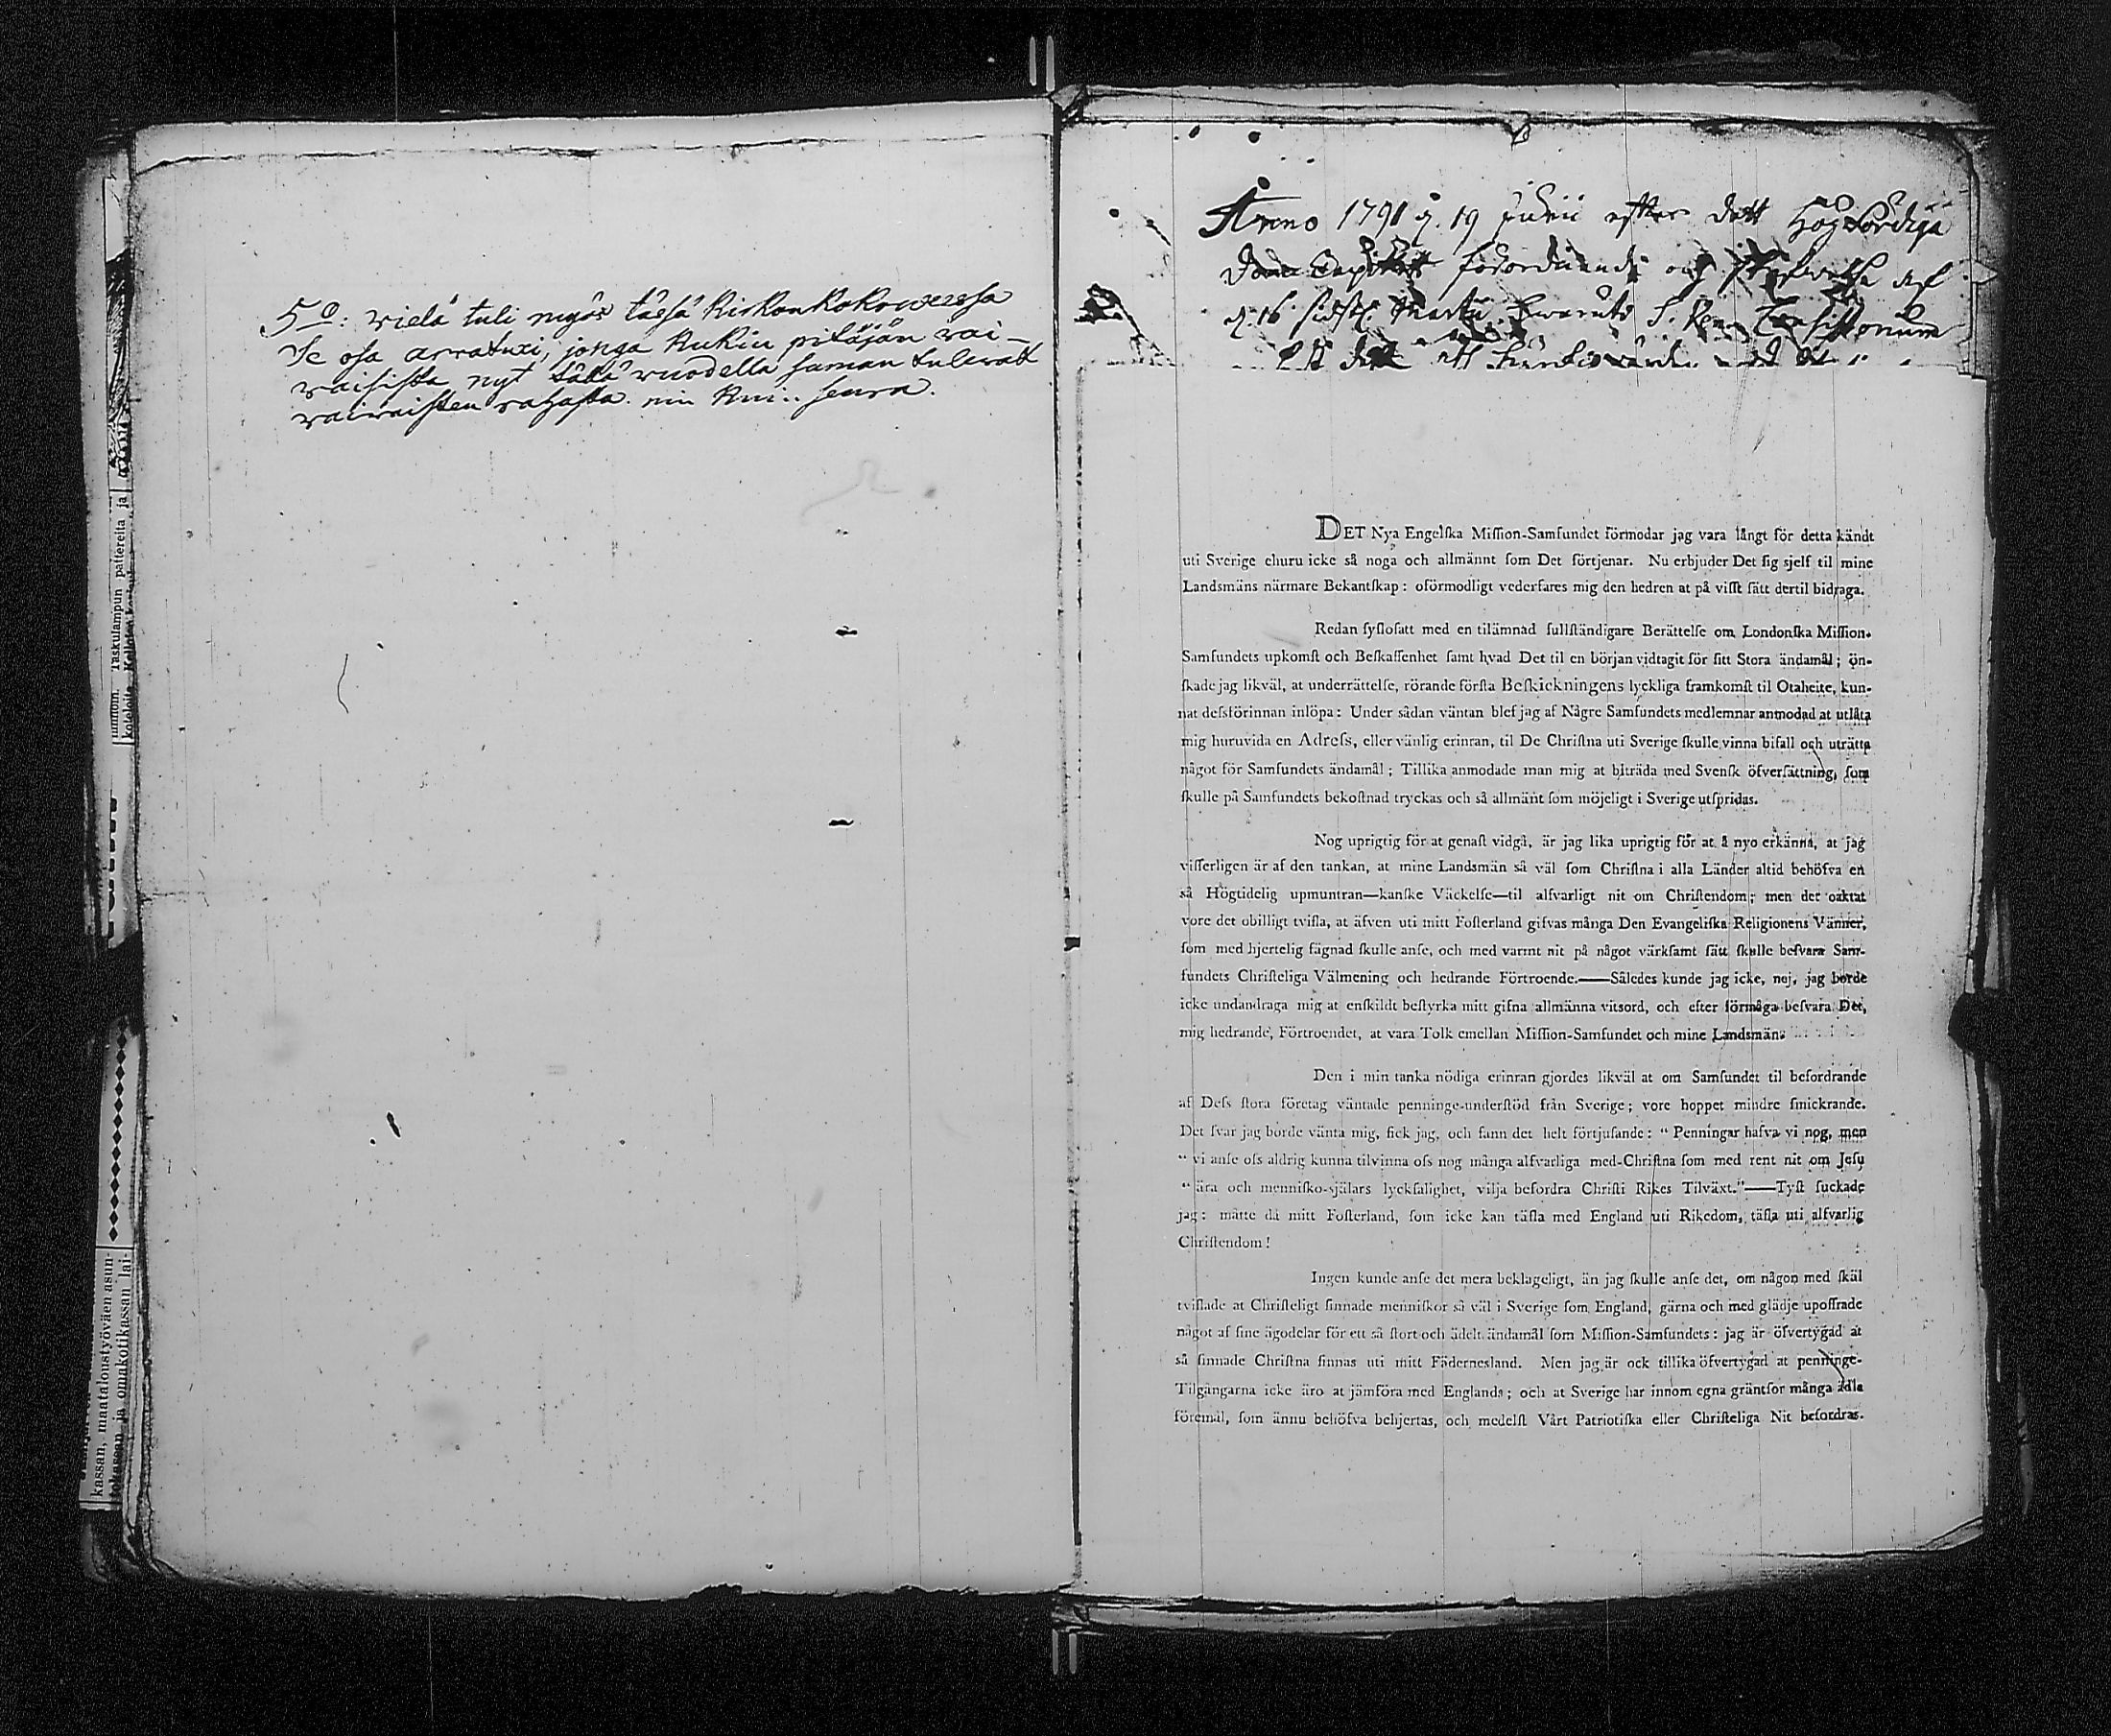 5º: vielä tuli myös täsä Kirkon Kokouxessa
Se osa arvatuxi, jonga Kukin pitäjän vai-
vaisista nyt tällä vuodella saman tulevatt
vaivaisten rahasta niin kuin seura.
Anno 1791 d. 19 Junii efter dett Högvördiga
Dom Capitlets förordnande och skrifvelse af
d. 16 sidstl. Martii
DET Nya Engelſka Miſſion-Samfundet förmodar jag vara långt för detta kändt
uti Sverige ehuru icke så noga och allmännt ſom Det förtjenar. Nu erbjuder Det ſig sjelf til mine
Landsmäns närmare Bekantſkap: oförmodligt vederfares mig den hedren at på viſſt ſätt dertil bidraga.
Redan ſyſloſatt med en tilämnad fullſtändigare Berättelſe om Londonſka Miſſion-
Samfundets upkomſt och Beſkaffenhet ſamt hvad Det til en början vidtagit för ſitt Stora ändamål; ön-
ſkade jag likväl, at underrättelſe, rörande förſta Beſkickningens lyckliga framkomſt til Otaheite, kun-
nat deſsförinnan inlöpa: Under sådan väntan blef jag af Någre Samfundets medlemnar anmodad at utlåta
mig huruvida en Adreſs, eller vänlig erinran, til De Chriſtna uti Sverige ſkulle vinna bifall och uträtta
något för Samfundets ändamål; Tillika anmodade man mig at biträda med Svenſk öfverſättning, ſom
ſkulle på Samfundets bekoſtnad tryckas och så allmänt ſom möjeligt i Sverige utſpridas.
Nog uprigtig för at genaſt vidgå, är jag lika uprigtig för at å nyo erkänna, at jag
viſſerligen är af den tankan, at mine Landsmän så väl ſom Chriſtna i alla Länder altid behöfva en
så Högtidelig upmuntran—kanſke Väckelſe—til alfvarligt nit om Chriſtendom; men det oaktat
vore det obilligt tvifla, at äfven uti mitt Foſterland gifvas många Den Evangeliſka Religionens Vänner,
ſom med hjertelig fägnad ſkulle anſe, och med varmt nit på något värkſamt ſätt ſkulle beſvara Sam-
fundets Chriſteliga Välmening och hedrande Förtroende.——Således kunde jag icke, nej, jag borde
icke undandraga mig at enſkildt beſtyrka mitt gifna allmänna vitsord, och efter förmåga beſvara Det,
mig hedrande, Förtroendet, at vara Tolk emellan Miſſion-Samfundet och mine Landsmän.
Den i min tanka nödiga erinran gjordes likväl at om Samfundet til befordrande
af Deſs ſtora företag väntade penninge-underſtöd från Sverige; vore hoppet mindre ſmickrande.
Det ſvar jag borde vänta mig, fick jag, och fann det helt förtjuſande: “ Penningar hafva vi nog, men
“ vi anſe oſs aldrig kunna tilvinna oſs nog många alfvarliga med-Chriſtna ſom med rent nit om Jeſu
“ ära och menniſko-ſjälars lyckſalighet, vilja befordra Chriſti Rikes Tilväxt.”——Tyſt ſuckade
jag: måtte då mitt Foſterland, ſom icke kan täfla med England uti Rikedom, täfla uti alfvarlig
Chriſtendom!
Ingen kunde anſe det mera beklageligt, än jag ſkulle anſe det, om någon med ſkäl
tviflade at Chriſteligt ſinnade menniſkor så väl i Sverige ſom England, gärna och med glädje upoffrade
något af ſine ägodelar för ett så ſtort och ädelt ändamål ſom Miſſion-Samfundets: jag är öfvertygad at
så ſinnade Chriſtna finnas uti mitt Fädernesland. Men jag är ock tillika öfvertygad at penninge-
Tilgångarna icke äro at jämföra med Englands; och at Sverige har innom egna gräntſor många ädla
föremål, ſom ännu behöfva behjertas, och medelſt Vårt Patriotiſka eller Chriſteliga Nit befordras.
Taskulampun pattereita ja
kassan, maataloustyöväen asun-
tokassan ja omakotikassan lai-